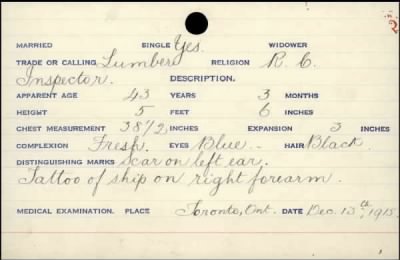 MARRIED SINGLE Yes. WIDOWER
TRADE OR CALLING Lumber RELIGION R. C.
Inspector. DESCRIPTION.
APPARENT AGE 43 YEARS 3 MONTHS
HEIGHT 5 FEET 6 INCHES
CHEST MEASUREMENT 38 1/2 INCHES EXPANSION 3 INCHES
COMPLEXION Fresh. EYES Blue. HAIR Black.
DISTINGUISHING MARKS Scar on left ear.
Tattoo of ship on right forearm.
MEDICAL EXAMINATION. PLACE Toronto, Ont. DATE Dec. 13th, 1915.